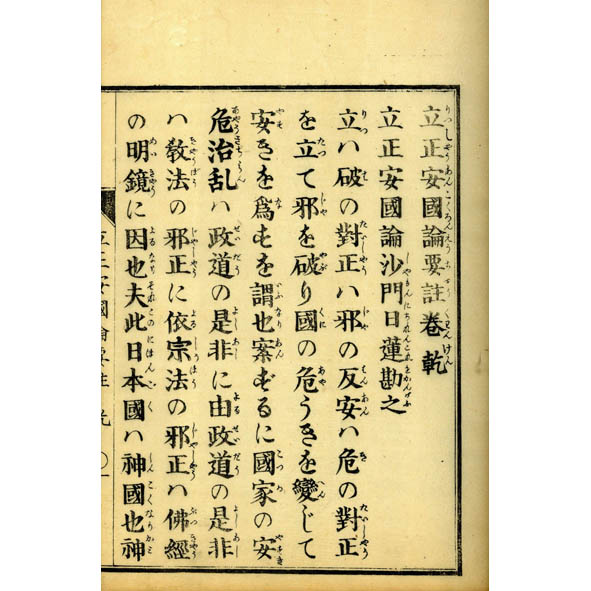 立正安國論要註卷乾
立正安國論沙門日蓮勘之
立ハ破の對正ハ邪の反安ハ危の對正
を立て邪を破り國の危うきを變じて
安きを爲すを謂也案ずるに國家の安
危治乱ハ政道の是非に由政道の是非
ハ敎法の邪正に依宗法の邪正ハ佛經
の明鏡に因也夫此日本國ハ神國也神
立正安國論要註